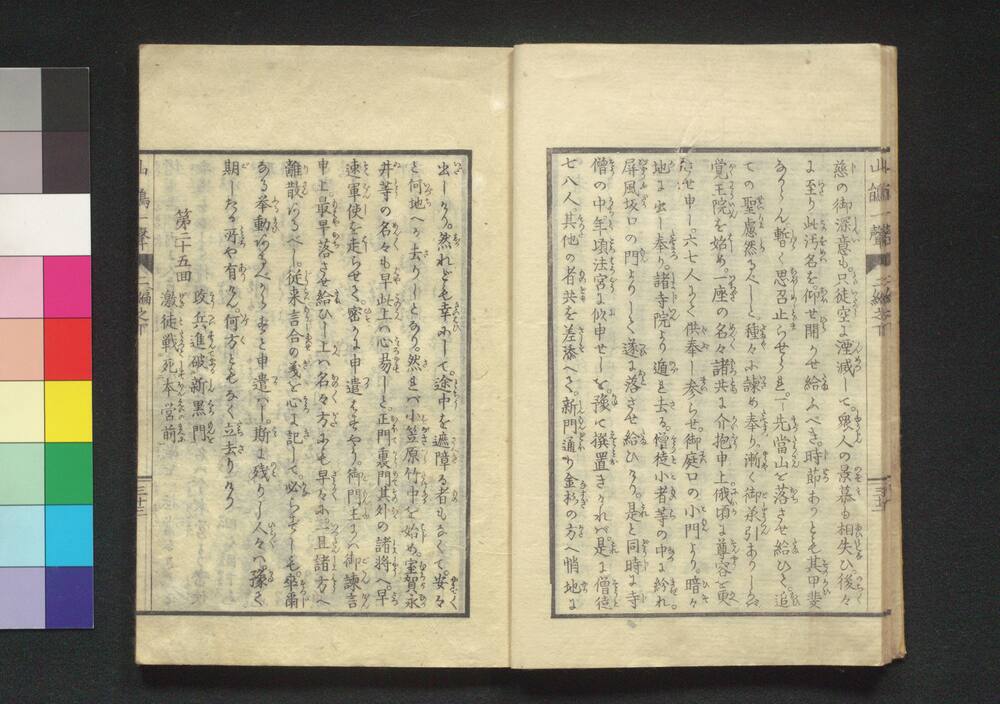 慈の御深意も。只徒空に湮滅して。衆人の景慕も相失ひ。後々
に至り此汚名を。仰せ開らせ給ふべき。時節ありとも其甲斐
あらん。暫く思召止らせられ。一先当山を落させ給ひて。追
ての聖慮然るべしと。種々に諫め奉り。漸く御承引ありしかバ
覚王院を始め。一座の名々諸共に介抱申上。俄頃に尊容を更
させ申し。六七人にて供奉し参らせ。御庭口の小門より。暗々
地に出し奉り。諸寺院より遁れ去る。僧徒小者等の中に紛れ
屏風坂口の門よりして。遂に落させ給ひけり。是と同時に寺
僧の中。年頃法宮に似申せしを。豫て撰置きけれバ。是に僧徒
七八人其他の者共を差添へて。新門通り金杉の方へ悄地に
出しけり。然れども幸にして。途中を遮障る者もなくて。安々
と何地へか去りしとなり。然れバ小笠原竹中を始め。室賀永
井等の名々も早此上ハ心易しと。正門裏門其外の諸将へ早
速軍使を走らせて。密かに申遣はせやう。御門主にハ御諫言
申上。最早落させ給ひし上ハ名々方にも早々に。一旦諸方へ
離散あるべし。従来言合の義を心に記して。必らずしも卒爾
ある挙動あるべからずと申遣ハし。斯に残りし人々ハ。豫て
期したる所や有けん。何方ともなく立去りけり
第二十五回
攻兵進破新黒門
激徒戦死本営前